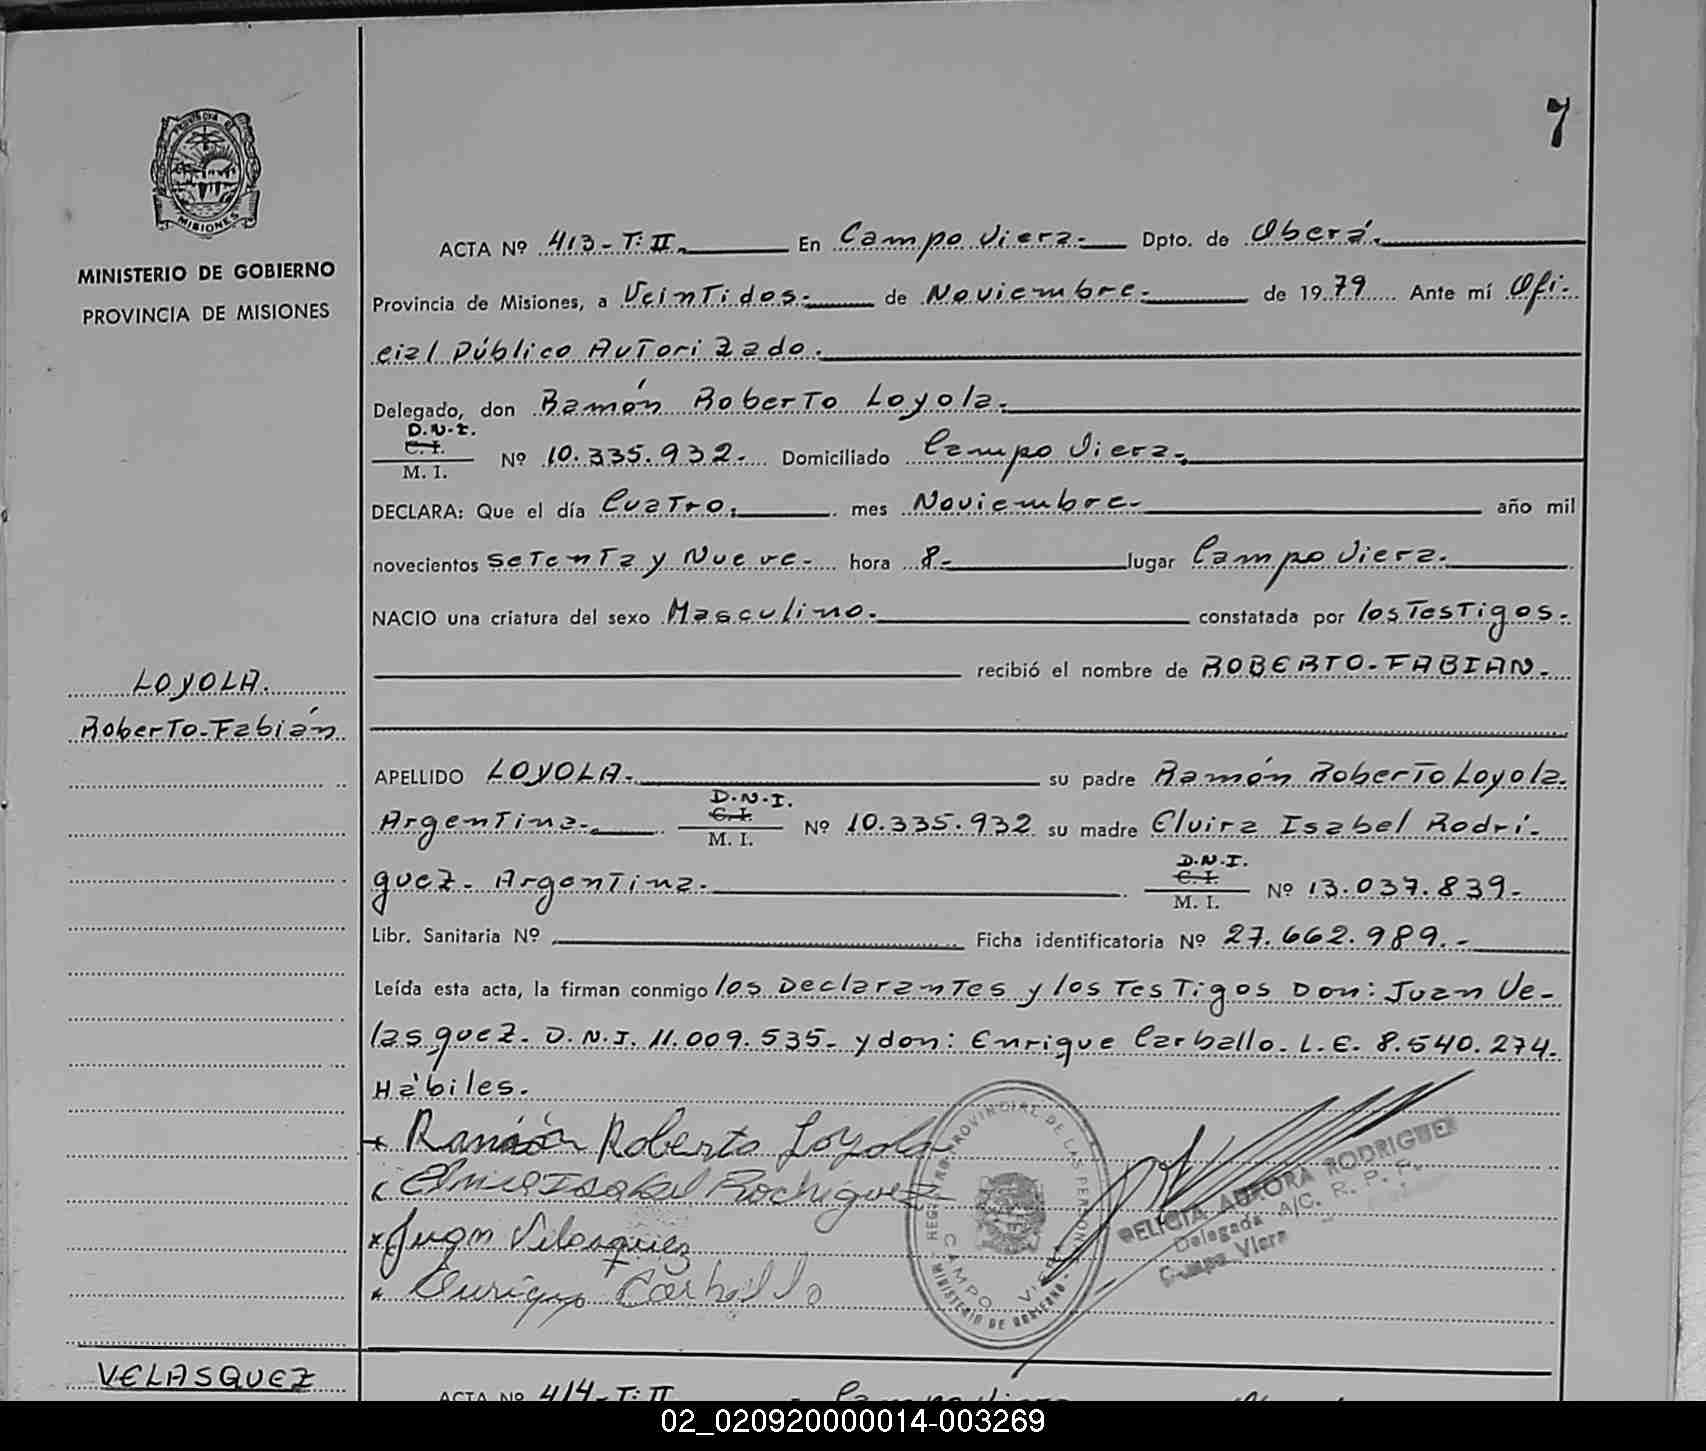 7
PROVINCIA DE
MISIONES
MINISTERIO DE GOBIERNO
PROVINCIA DE MISIONES
ACTA Nº 413-T:II. En Campo Viera- Dpto. de Oberá.
Provincia de Misiones, a Veintidos- de Noviembre- de 1979 Ante mí Ofi-
cial Público Autorizado.
Delegado, don Ramón Roberto Loyola.
D.N.I.
C. I.
M. I. Nº 10.335.932- Domiciliado Campo Viera-
DECLARA: Que el día Cuatro. mes Noviembre- año mil
novecientos setenta y Nueve- hora 8- lugar Campo Viera-
NACIO una criatura del sexo Masculino- constatada por los Testigos-
recibió el nombre de ROBERTO-FABIAN-
LOYOLA.
Roberto-Fabián
APELLIDO LOYOLA- su padre Ramón Roberto Loyola.
Argentina- D.N.I. C. I. M. I. Nº 10.335.932 su madre Elvira Isabel Rodrí-
guez- Argentina- D.N.I. C. I. M. I. Nº 13.037.839-
Libr. Sanitaria Nº Ficha identificatoria Nº 27.662.989.-
Leída esta acta, la firman conmigo los Declarantes y los Testigos Don: Juan Ve-
lasquez- D.N.I. 11.009.535- y don: Enrique Carballo- L.E. 8.540.274-
Hábiles.
Ramón Roberto Loyola
Elvira Isabel Rodriguez
Juan Velasquez
Enrique Carballo
REGISTRO PROVINCIAL DE LAS PERSONAS
CAMPO VIERA
MINISTERIO DE GOBIERNO
FELICIA AURORA RODRIGUEZ
Delegada A/C. R. P. P.
Campo Viera
VELASQUEZ
ACTA Nº 414-T:II Campo Viera
02_020920000014-003269